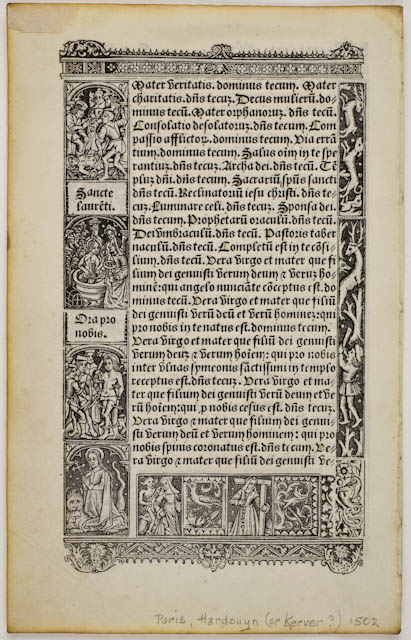 Mater veritatis. dominus tecum. Mater
charitatis. dñs tecuz. Decus mulierũ. do-
minus tecũ. Mater orphanoruz. dñs tecũ.
Consolatio desolatoruz. dñs tecum. Com
passio afflictoꝝ. dominus tecum. Via errã
tum. dominus tecum. Salus oĩm in te spe
rantiuz. dñs tecuz. Archa dei. dñs tecũ. Tẽ
pluz dñi. dñs tecum. Sacrariũ spũs sancti
dñs tecũ. Reclinatoriũ iesu christi. dñs te-
cuz. Luminare celi. dñs tecuz. Sponsa dei.
dñs tecum. Prophetarũ oraculũ. dñs tecũ.
Dei vmbraculũ. dñs tecũ. Pastoris taber
naculũ. dñs tecũ. Completũ est in te cõsi-
lium. dñs tecũ. Vera virgo et mater que fi
lium dei genuisti verum deum ⁊ verũ ho-
minẽ: qui angelo nunciãte cõceptus est. do
minus tecũ. Vera virgo et mater que filiũ
dei genuisti verũ deũ et verũ hominez: qui
pro nobis in te natus est. dominus tecum.
Vera virgo et mater que filiũ dei genuisti
verum deuz ⁊ verum hoĩem: qui pro nobis
inter vlnas symeonis sãctissimi in templo
receptus est. dñs tecuz. Vera virgo et ma-
ter que filium dei genuisti verũ deum et ve
rũ hoĩez: qui ꝓ nobis cesus est. dñs tecuz.
Vera virgo ⁊ mater que filium dei genui-
sti verum deũ et verum hominem: qui pro
nobis spinis coronatus est. dñs tecum. Ve-
ra virgo ⁊ mater que filiũ dei genuisti ve-
Sancte
laurẽti.
Ora pro
nobis.
Paris, Hardouyn (or Kerver?) 1502